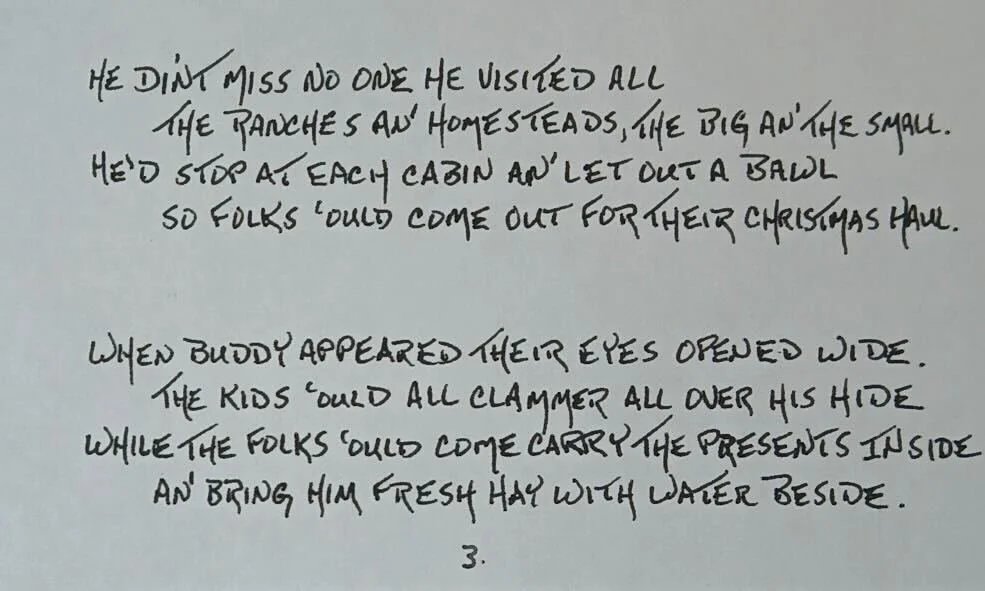 HE DIN'T MISS NO ONE HE VISITED ALL
THE RANCHES AN' HOMESTEADS, THE BIG AN' THE SMALL.
HE'D STOP AT EACH CABIN AN' LET OUT A BAWL
SO FOLKS 'OULD COME OUT FOR THEIR CHRISTMAS HAUL.
WHEN BUDDY APPEARED THEIR EYES OPENED WIDE.
THE KIDS 'OULD ALL CLAMMER ALL OVER HIS HIDE
WHILE THE FOLKS 'OULD COME CARRY THE PRESENTS INSIDE
AN' BRING HIM FRESH HAY WITH WATER BESIDE.
3.